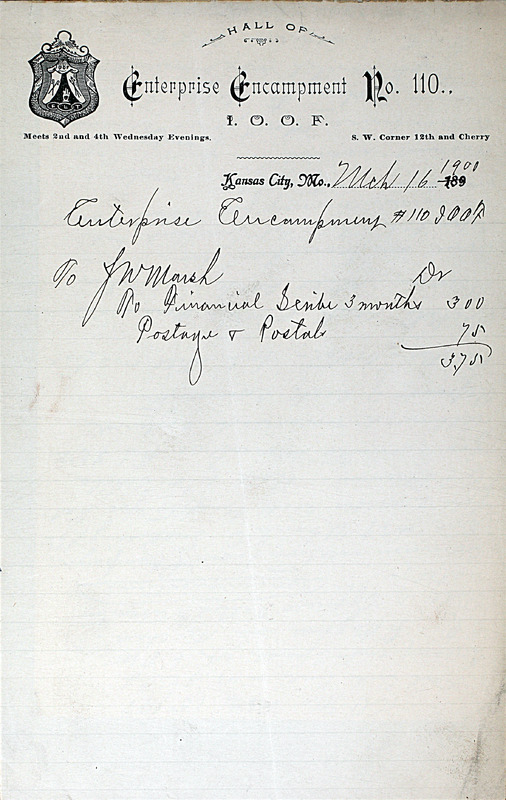 HALL OF
Enterprise Encampment No. 110.,
I. O. O. F.
Meets 2nd and 4th Wednesday Evenings. S. W. Corner 12th and Cherry
Kansas City, Mo., Mch 16 1900 189
Enterprise Encampment #110 IOOF
To J W Marsh Dr
To Financial Scribe 3 months 3 00
Postage & Postals 75
3,75